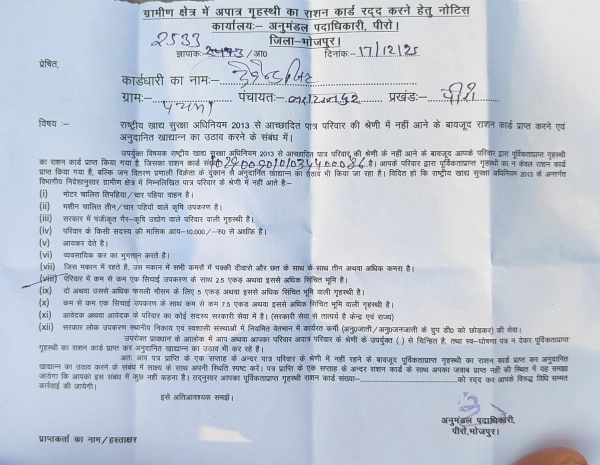 ग्रामीण क्षेत्र में अपात्र गृहस्थी का राशन कार्ड रद्द करने हेतु नोटिस
कार्यालयः– अनुमंडल पदाधिकारी, पीरो।
जिला–भोजपुर।
2533
ज्ञापांकः /आ0 दिनांकः–17/12/25
प्रेषित,
कार्डधारी का नामः–
ग्रामः– पंचायतः– प्रखंडः– पीरो
विषय :– राष्ट्रीय खाद्य सुरक्षा अधिनियम 2013 से आच्छादित पात्र परिवार की श्रेणी में नहीं आने के बावजूद राशन कार्ड प्राप्त करने एवं
अनुदानित खाद्यान्न का उठाव करने के संबंध में।
उपर्युक्त विषयक राष्ट्रीय खाद्य सुरक्षा अधिनियम 2013 से आच्छादित पात्र परिवार की श्रेणी के नहीं आने के बावजूद आपके परिवार द्वारा पूर्विकताप्राप्त गृहस्थी
का राशन कार्ड प्राप्त किया गया है, जिसका राशन कार्ड संख्या है। आपके परिवार द्वारा पूर्विकताप्राप्त गृहस्थी का न केवल राशन कार्ड
प्राप्त किया गया है, बल्कि जन वितरण प्रणाली विक्रेता के दुकान से अनुदानित खाद्यान्न का उठाव भी किया जा रहा है। विदित हो कि राष्ट्रीय खाद्य सुरक्षा अधिनियम 2013 के अन्तर्गत
विभागीय निदेशानुसार ग्रामीण क्षेत्र में निम्नलिखित पात्र परिवार के श्रेणी में नहीं आते है:–
(i) मोटर चालित तिपहिया/चार पहिया वाहन है।
(ii) मशीन चालित तीन/चार पहियों वाले कृषि उपकरण है।
(iii) सरकार में पंजीकृत गैर–कृषि उद्योग वाले परिवार वाली गृहस्थी है।
(iv) परिवार के किसी सदस्य की मासिक आय–10,000/–रू0 से अधिक है।
(v) आयकर देते है।
(vi) व्यवसायिक कर का भुगतान करते है।
(vii) जिस मकान में रहते है, उस मकान में सभी कमरों में पक्की दीवारो और छत के साथ के साथ तीन अथवा अधिक कमरा है।
(viii) परिवार में कम से कम एक सिंचाई उपकरण के साथ 2.5 एकड़ अथवा इससे अधिक सिंचित भूमि है।
(ix) दो अथवा उससे अधिक फसली मौसम के लिए 5 एकड़ अथवा इससे अधिक सिंचित भूमि वाली गृहस्थी है।
(x) कम से कम एक सिंचाई उपकरण के साथ कम से कम 7.5 एकड़ अथवा इससे अधिक सिंचित भूमि वाली गृहस्थी है।
(xi) आवेदक अथवा आवेदक के परिवार का कोई सदस्य सरकारी सेवा में है। (सरकारी सेवा से तात्पर्य है केन्द्र एवं राज्य)
(xii) सरकार लोक उपकरण स्थानीय निकाय एवं स्वशासी संस्थाओं में नियमित वेतनमान में कार्यरत कर्मी (अनु0जाती/अनु0जनजाती के ग्रुप डी0 को छोडकर) की सेवा।
उपरोक्त प्रावधान के आलोक में आप अथवा आपका परिवार अपात्र परिवार के श्रेणी के उपर्युक्त ( ) से चिन्हित है, तथा स्व–घोषणा पत्र न देकर पूर्विकताप्राप्त
गृहस्थी का राशन कार्ड प्राप्त कर अनुदानित खाद्यान्न का उठाव भी कर रहे है।
अतः आप पत्र प्राप्ति के एक सप्ताह के अन्दर पात्र परिवार के श्रेणी में नहीं रहने के बावजूद पूर्विकताप्राप्त गृहस्थी का राशन कार्ड प्राप्त कर अनुदानित
खाद्यान्न का उठाव करने के संबंध में साक्ष्य के साथ अपनी स्थिति स्पष्ट करें। पत्र प्राप्ति के एक सप्ताह के अन्दर राशन कार्ड के साथ अपका जवाब प्राप्त नहीं की स्थिति में यह समझा
जायेगा कि आपको इस संबंध में कुछ नहीं कहना है। तद्नुसार आपका पूर्विकताप्राप्त गृहस्थी राशन कार्ड संख्या–........................को रद्द कर आपके विरुद्ध विधि सम्मत
कार्रवाई की जायेगी।
इसे अतिआवश्यक समझें।
अनुमंडल पदाधिकारी,
पीरो,भोजपुर।
प्राप्तकर्ता का नाम/हस्ताक्षर